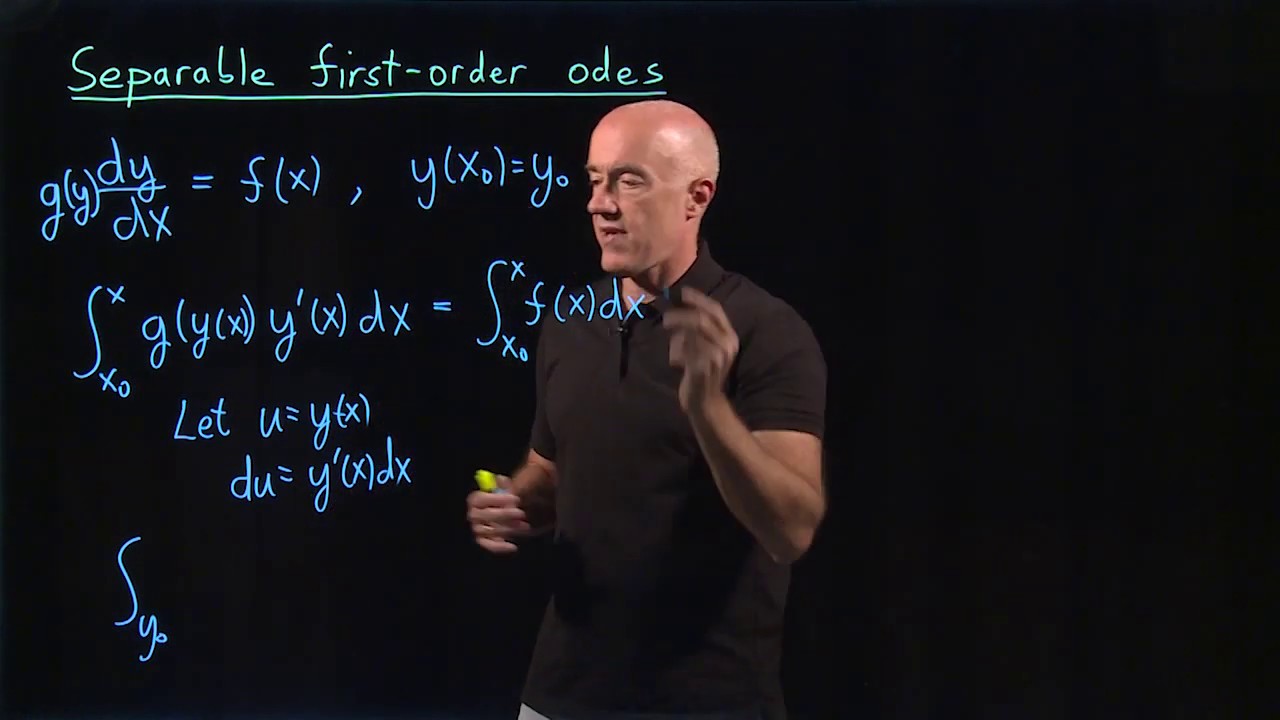 Separable first-order odes
g(y) dy/dx = f(x) , y(x₀)=y₀
∫_{x₀}^{x} g(y(x)) y'(x) dx = ∫_{x₀}^{x} f(x)dx
Let u= y(x)
du= y'(x)dx
∫_{y₀}